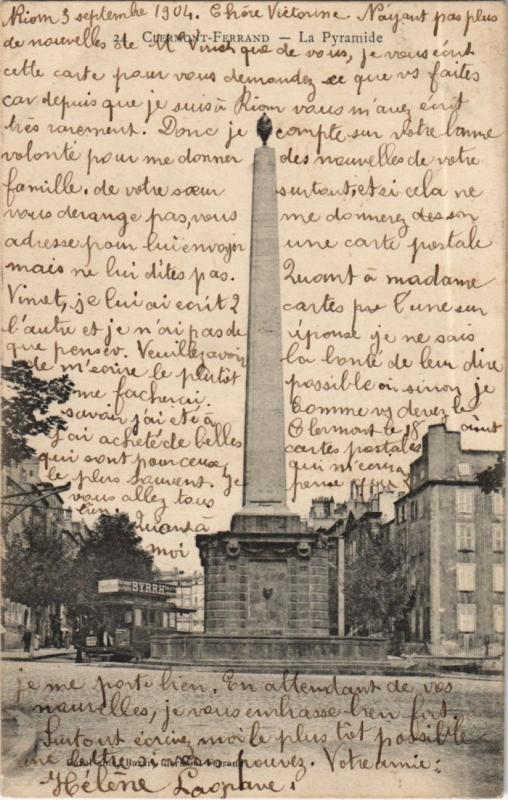 Riom 3 septembre 1904. Chère Victorine. N'ayant pas plus
21. CLERMONT-FERRAND — La Pyramide
de nouvelles de Mme Vinet que de vous, je vous écrit
cette carte pour vous demandez ce que vs faites
car depuis que je suis à Riom vous m'avez écrit
très rarement. Donc je compte sur votre bonne
volonté pour me donner des nouvelles de votre
famille. de votre sœur surtout, et si cela ne
vous derange pas, vous me donnerez des son
adresse pour lui envoyer une carte postale
mais ne lui dites pas. Quant à madame
Vinet, je lui ai ecrit 2 cartes pr l'une sur
l'autre et je n'ai pas de réponse je ne sais
que penser. Veuillez avoir la bonté de leur dire
de m'écrire le plutôt possible ou sinon je
me facherai. Comme vs devez le
savoir j'ai été à Clermont le 18 août
j'ai acheté de belles cartes postales
qui sont pour ceux, qui m'écrira
le plus souvent. Je pense que
vous allez tous
bien. Quant à
moi
BYRRH
je me porte bien. En attendant de vos
nouvelles, je vous embrasse bien fort.
Surtout écrivez moi le plus tôt possible
me pouvez. Votre amie:
Hélène